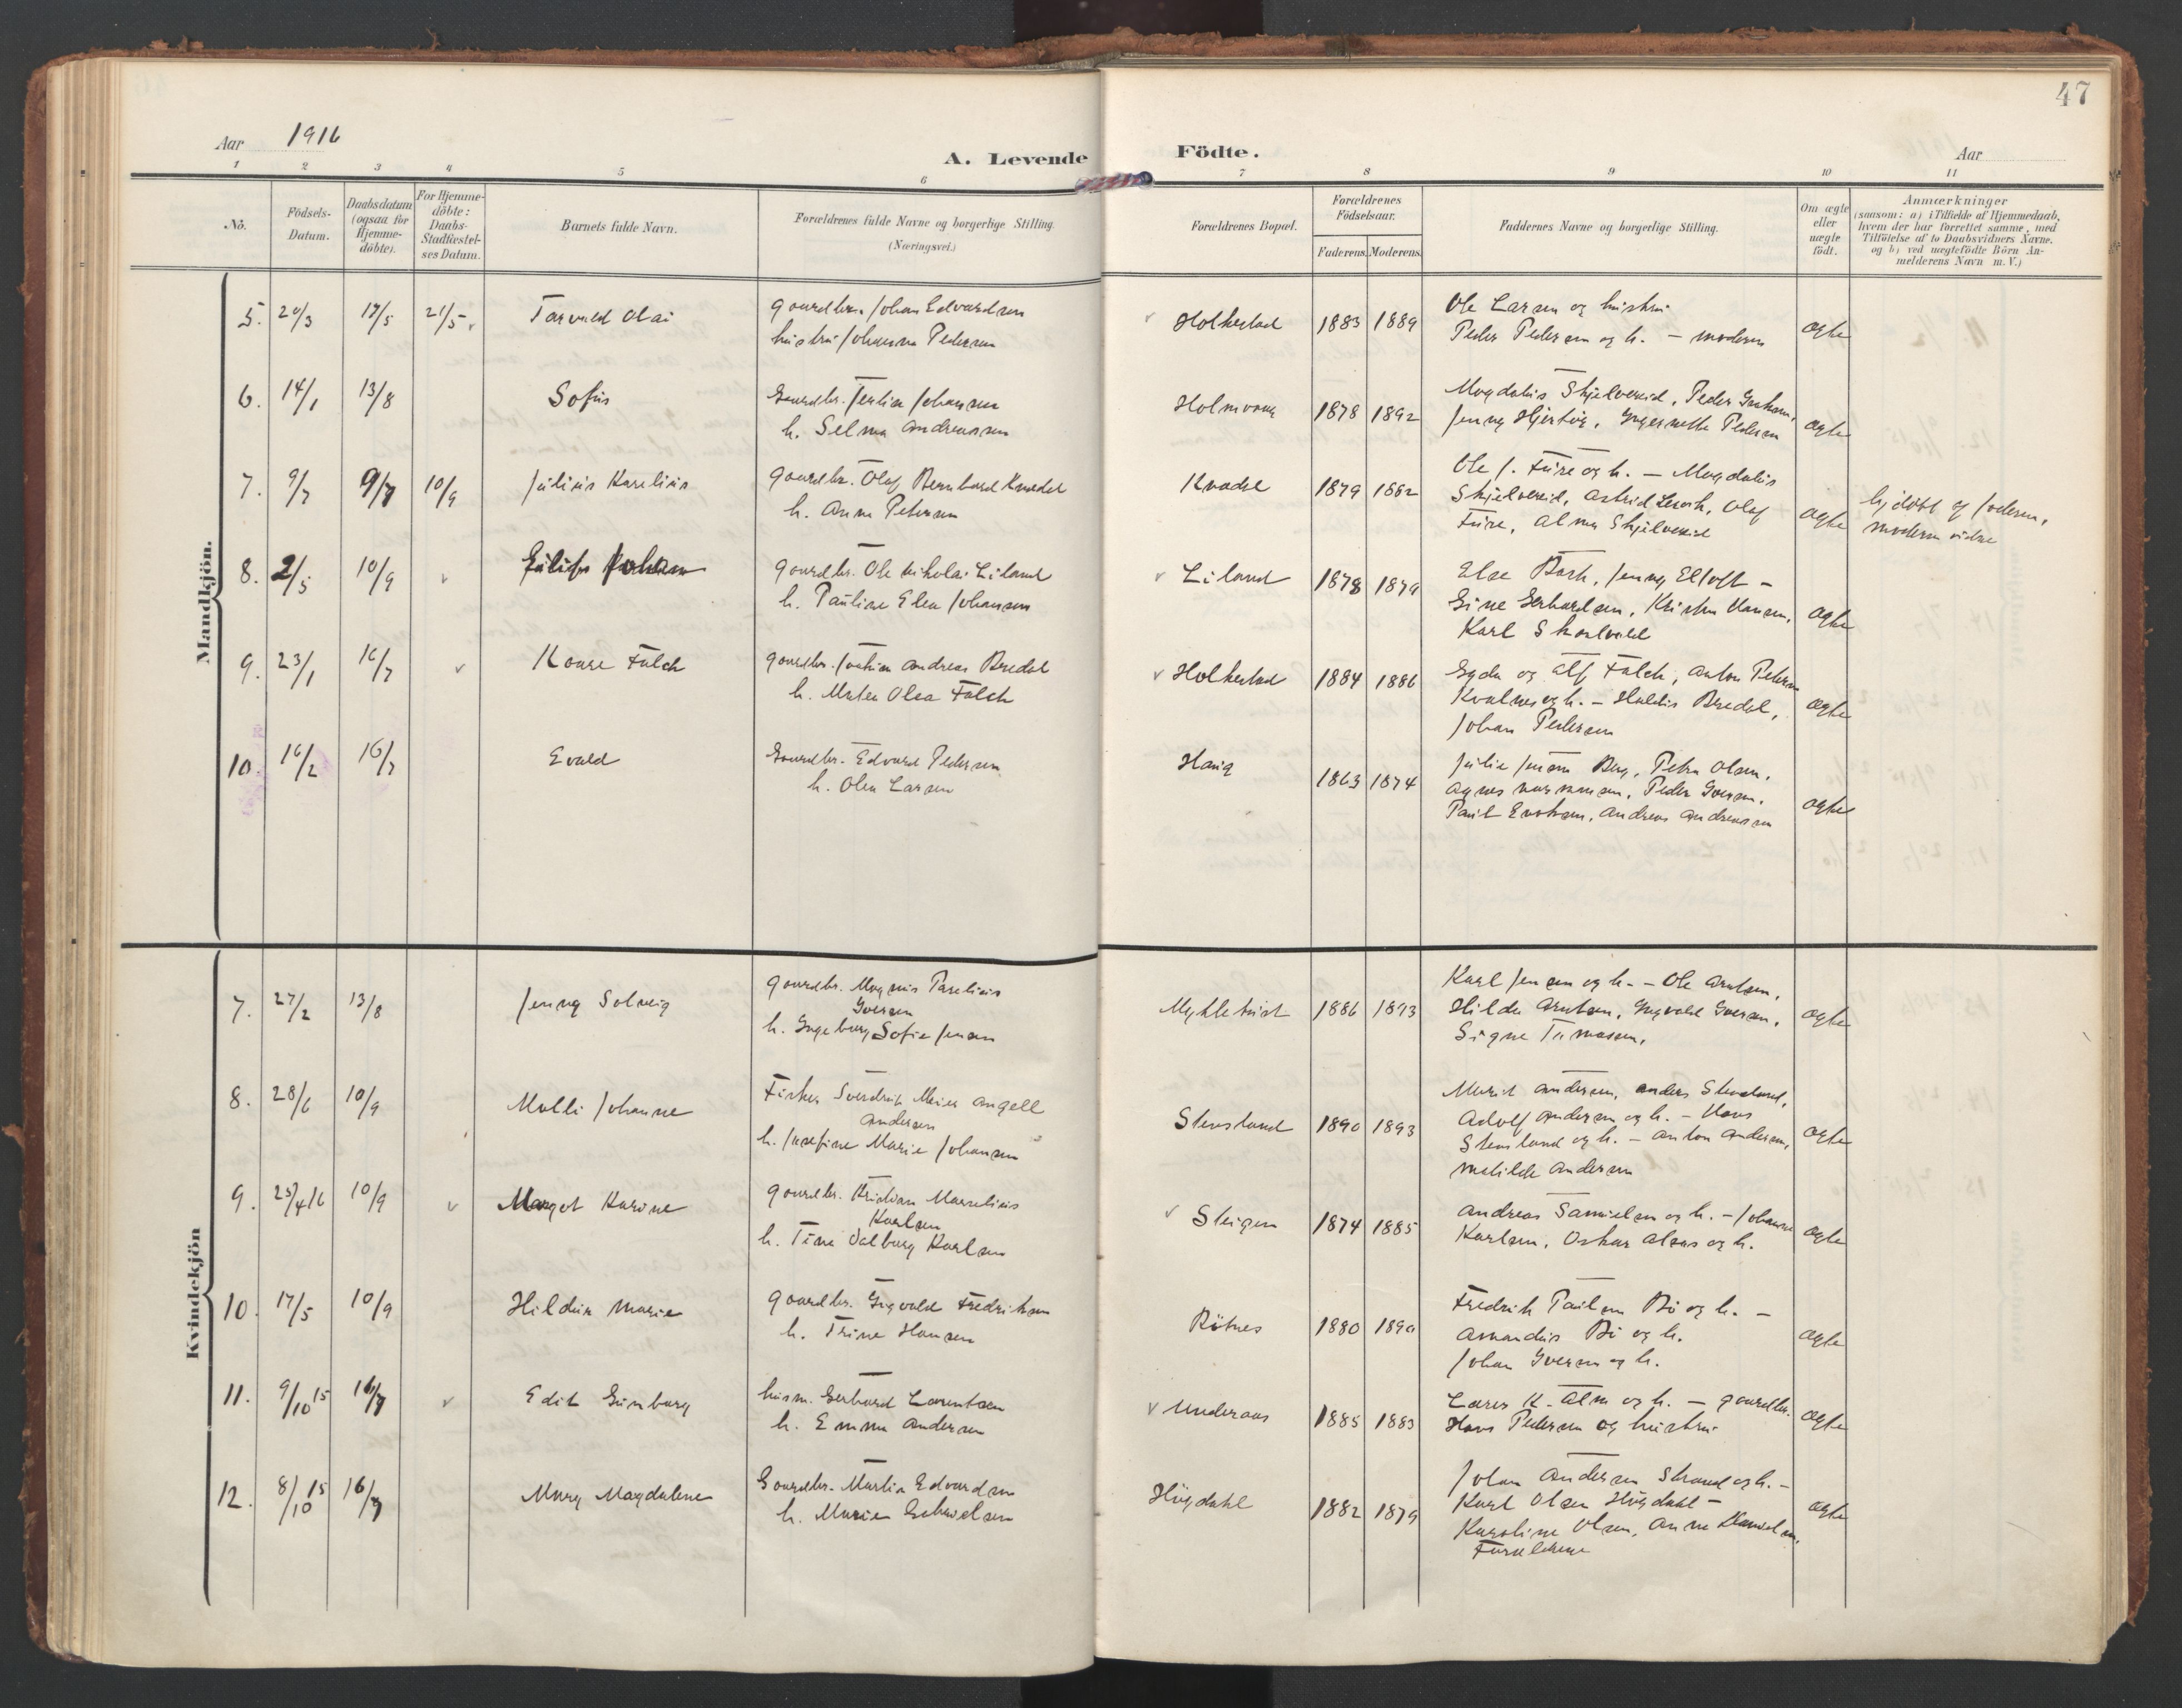 47
Aar 1916
A. Levende Födte.
Aar
1 2 3 4 5 6 7 8 9 10 11
No.
Födsels-Datum.
Daabsdatum (ogsaa for Hjemme-döbte).
For Hjemme-döbte: Daabs-Stadfæstel-ses Datum.
Barnets fulde Navn.
Forældrenes fulde Navne og borgerlige Stilling. (Næringsvei.)
Forældrenes Bopæl.
Forældrenes Födselsaar.
Faderens. Moderens.
Faddernes Navne og borgerlige Stilling.
Om ægte eller uægte födt.
Anmærkninger
(saasom: a) i Tilfælde af Hjemmedaab,
hvem der har forrettet samme, med
Tilföielse af to Daabsvidners Navne.
og b) ved uægtefödte Börn An-
melderens Navn m. V.)
Mandkjön.
5. 20/3 17/5 21/5 Torvald Olai
gaardbr. Johan Edvardsen
hustru Johanna Pedersen
Holkestad 1883 1889
Ole Larsen og hustru
Peder Pedersen og h. – moderen
ægte
6. 14/1 13/8 Sofus
Gaardbr. Johansen
h. Selma Andreassen
Holmvaag 1878 1892
Magdalus Skjelvereid, Peder
Jenny Hjertö, Pedersen
ægte
7. 9/7 9/7 10/9 Julius Karelius
gaardbr. Olaf Bernhard Kvadal
h. Anna Petersen
Kvadal 1879 1882
Ole J. Fure og h. – Magdalus
Skjelvereid, Astrid Olaf
Fure, Alma Skjelvereid
ægte
hjdöbt af faderen,
moderen vidne
8. 2/5 10/9 Johan
gaardbr. Ole Nikolai Liland
h. Pauline Elea Johansen
Liland 1878 1879
Else Jenny Eltoft –
Gine Gerhardsen, Hansen,
Karl
ægte
9. 23/1 16/7 Kaare Falch
gaardbr. Joakim Andreas Bredal
h. Olea Falch
Holkestad 1884 1886
og Alf Falch, Anton Petersen
Kvalnes og h. – Haldis Bredal,
Johan Pedersen
ægte
10. 16/2 16/7 Evald
Gaardbr. Edvard Pedersen
h. Olea Larsen
Haug 1863 1874
Julie Jensen Berg, Petra Olsen,
Agnes Peder Iversen,
Andreas Andreassen
ægte
Kvindekjön
7. 27/2 13/8 Jenny Solveig
gaardbr. Magnus Parelius
Iversen
h. Ingeborg Sofie Jensen
Myklebust 1886 1893
Karl Jensen og h. – Ole Arntsen,
Hilda Arntsen, Ingvald Iversen,
Signe Tomassen.
ægte
8. 28/6 10/9 Malli Johanne
Fisker Sverdrup Meier Angell
Andersen
h. Josefine Marie Johansen
Stensland 1890 1893
Marit Andersen, Anders Stensland,
Adolf Andersen og h. – Hans
Stensland og h. – Anton Andersen,
Matilde Andersen
ægte
9. 25/4 16 10/9 Margot Karine
gaardbr. Kristian Marselius
Karlsen
h. Tine Valborg Karlsen
Steigen 1874 1885
Andreas Samuelsen og h. – Johanne
Karlsen, Oskar og h.
ægte
10. 17/5 10/9 Hildur Marie
gaardbr. Sigvald Fredriksen
h. Trine Hansen
Bötnes 1880 1890
Fredrik Paulsen Bö og h. –
Amandus Bö og h.
Johan Iversen og h.
ægte
11. 9/10 15 16/7 Edit Gunborg
husm. Gerhard Lorentsen
h. Emma Andersen
Underaas 1885 1883
Lars K. Alm og h. – gaardbr.
Hans Pedersen og hustru
ægte
12. 8/10 15 16/7 Mary Magdalene
Gaardbr. Martin Edvardsen
h. Marie
Högdahl 1882 1879
Johan Andersen Strand og h. –
Karl Olsen Högdahl –
Karoline Olsen, Anna Danielsen,
Forældrene
ægte